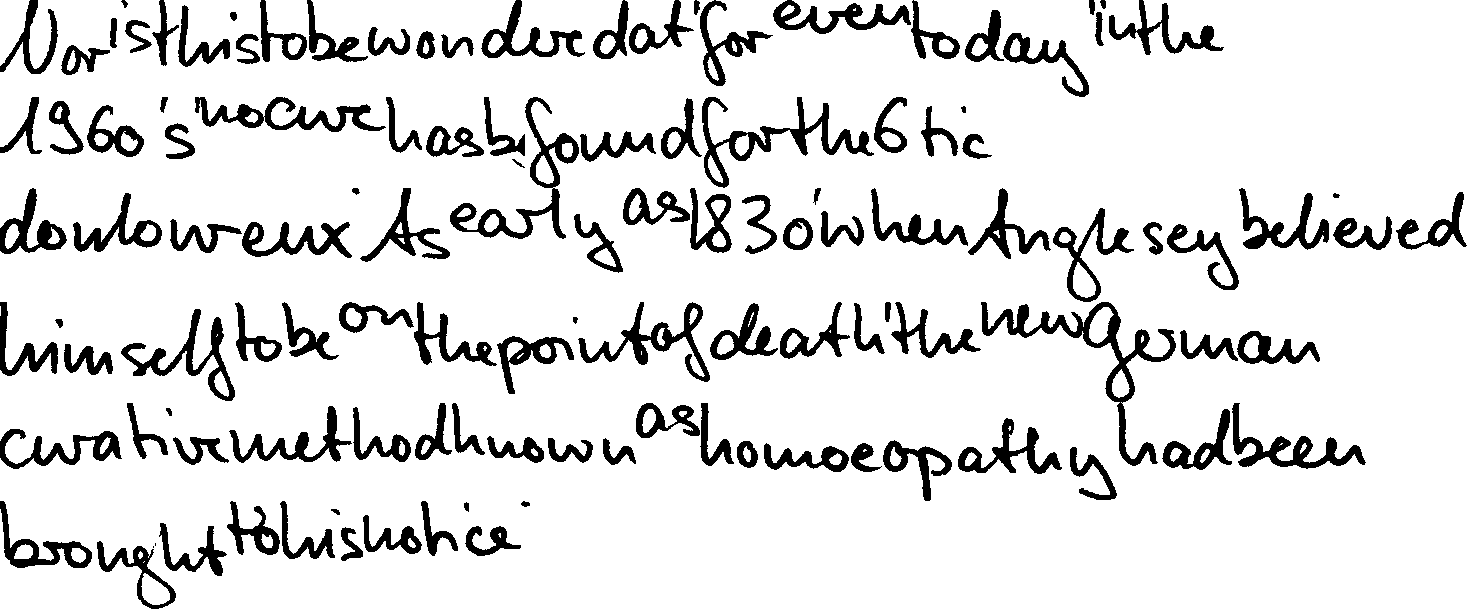 Nor is this to be wondered at for even today in the
1960's no cure has be found for the 6 tic
douloureux. As early as 1830 when Anglesey believed
himself to be on the point of death the new German
curative method known as homoeopathy had been
brought to his notice.